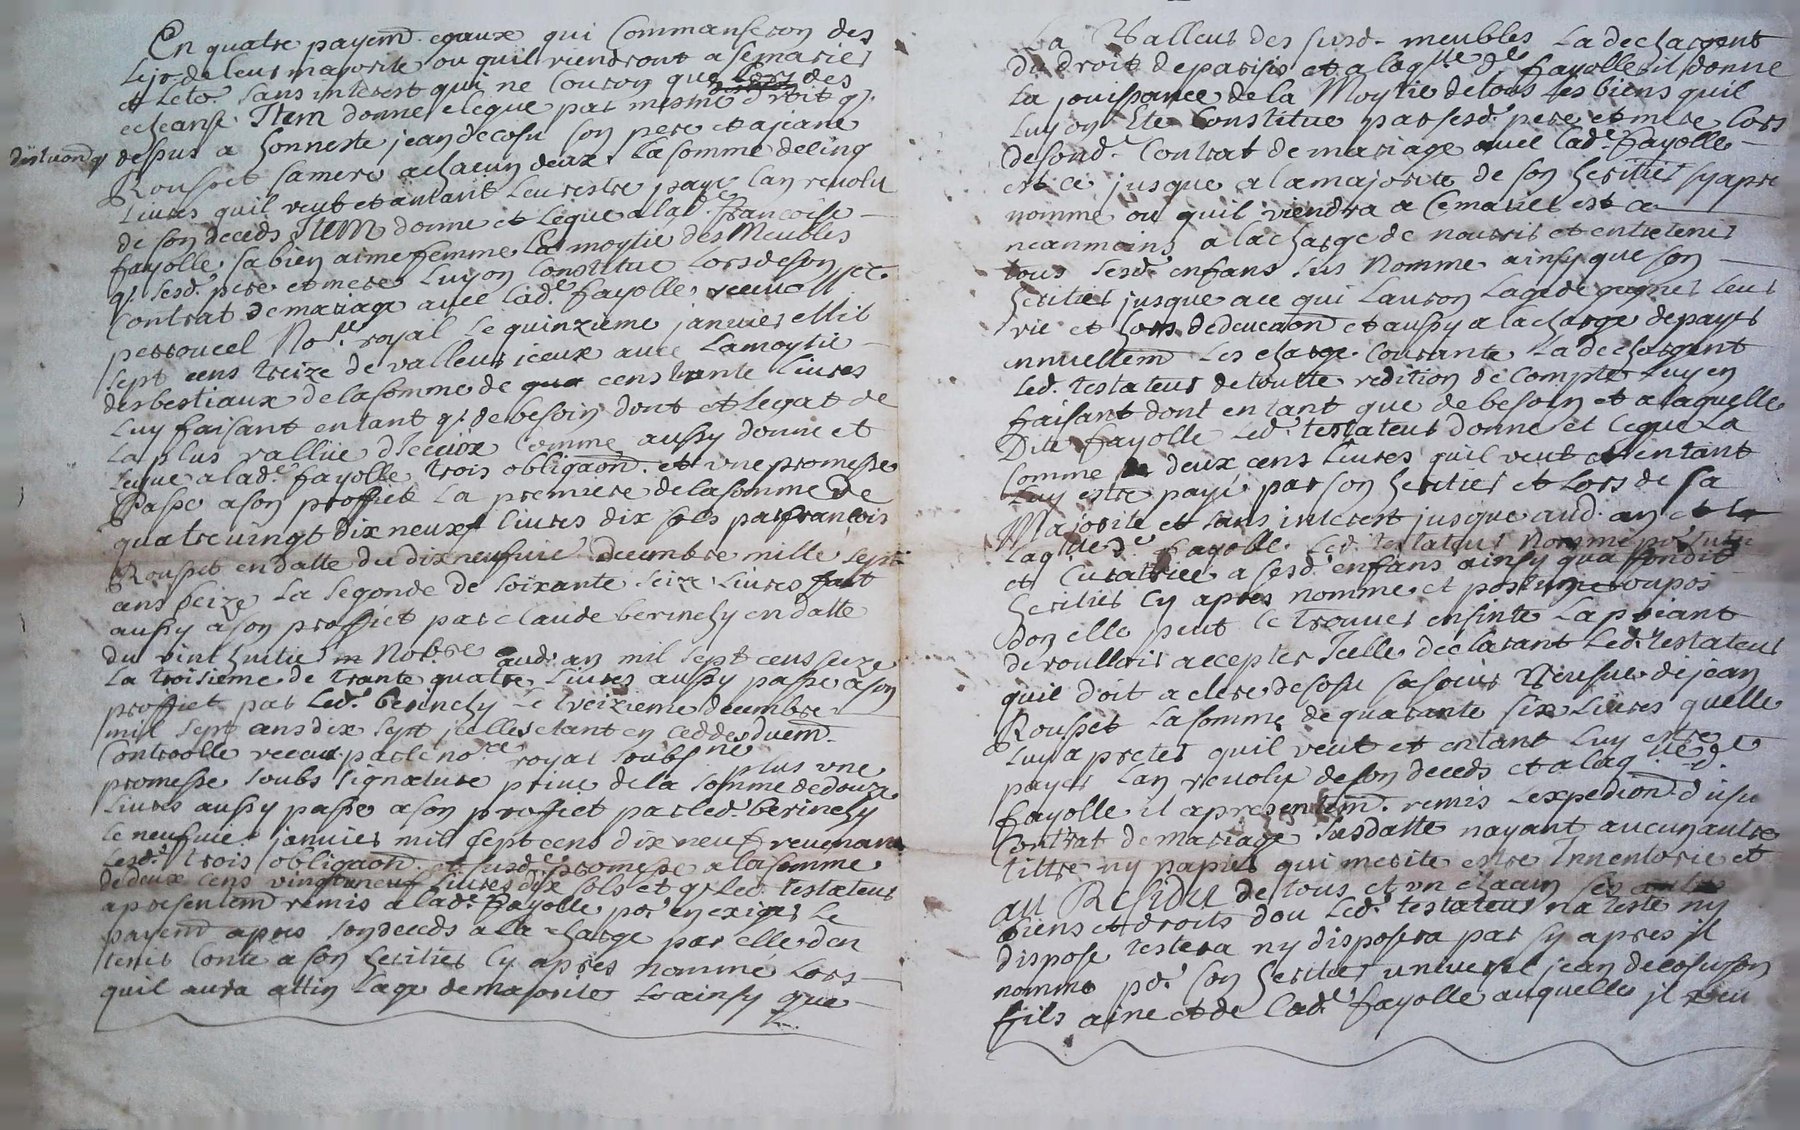 En quatre payem. egaux qui Commanseron des
Le jo. de leur majorite ou quil viendront a se marier
et Leto. sans interest qui ne Couron que des
echeanse. Item donne et leque par mesme droit q.
dessus a honneste jean decosu son pere et a jeane
Rousset sa mere a chacun deux La somme de cinq
Livres quil veut et antant leur estre paye lan revolu
de son deceds Item donne et leque a lad. francoise
fayolle sa bien aime femme La moytie des Meubles
q. lesd. pere et mere Luyon Constitue Lors de son
Contrat de mariage avec Lad.e fayolle receu
No.re royal Le quinzieme janvier Mil
sept cens treize de valleur iceux avec La moytie
des bestiaux de la somme de cens trante Livres
Luy faisant entant q. de besoin dont et Legat de
La plus vallue diceux comme aussy donne et
Leque a lad.e fayolle trois obligaon. et une promesse
Passe a son proffiet La premiere de la somme de
quatre vingt dix neuf livres dix sols par francois
Rousset en datte du dix neufvie decembre mille sept
ans seize La segonde de soixante seize Livres fait
aussy a son proffiet par claude berinchy en datte
du vint huitie Nobre aud. an mil sept cens seize
La troisieme de trante quatre Livres aussy passe a son
proffiet par Led. berinchy Le treizieme decembre
mil sept ans dix sept icelles etant en ced deduem.
Controlle receu par le no.re royal soubs.ne plus une
promesse soubs signature prive de la somme de douze
Livres aussy passe a son proffiet par led. berinchy
le neufvie janvier mil sept cens dix neuf revenant
Lesd. trois obligaon. et susd. promesse a la somme
de deux cens vingt neuf Livres dix sols et q. Led. testateur
a presentem remis a lad.e fayolle po. en exiger Le
payem apres son deceds a la charge par elle den
tenir Conte a son heritier Cy apres nomme Lors
quil aura attin Lage de majorite Le ainsy que
La Valleur des susd. meubles La dechargent
du droit de parisis et a laq.lle d.e fayolle il donne
La jouissance de la Moytie de tous les biens quil
Luyon Ete Constitue par sesd. pere et mere Lors
de sond. Contrat de mariage avec lad.e fayolle
est ce jusque a la majorite de son heritier sy apre
nomme ou quil viendra a ce marier est ce
neanmoins a la charge de nourrir et entretenir
tous sesd. enfans sus Nomme ainsy que son
heritier jusque a ce qui Lauron Lage de gagner Leur
vie et Lors deducaon et aussy a la charge de payer
annuellem Les charge Courante La dechargant
Led. testateur de toutte redition de Compte Luy en
faisant dont entant que de besoin et a laquelle
Dite fayolle Led. testateur donne et Leque La
somme de deux cens Livres quil veut et entant
Luy estre paye par son heritier et Lors de sa
Majorite et sans interest jusque aud. an
Laq.lle d.e fayolle Led. testateur Nomme
et Curatrice a sesd. enfans ainsy qua sondit
heritier Cy apres nomme et posthume ou pos
Don elle peut ce trouver ensinte La priant
de voulloir accepter Icelle declarant Led. testateur
quil doit a clere decosu sa soeur Veufve de jean
Rousset La somme de quarante six Livres quelle
Luy a preter quil veut et entant Luy estre
payer Lan revolu de son deceds et a laq.lle d.e
fayolle il a presentem. remis Lexpedion. dusu
Contrat de mariage susdatte nayant aucun autre
tittre ny papier qui merite estre Inventorie et
au Residu de tous et un chacun ses autres
biens et droits dou Led. testateur na teste ny
dispose testera ny disposera par sy apres il
nomme po. son heritier universel jean decosu son
fils aine et de Lad.e fayolle auquelle il veu